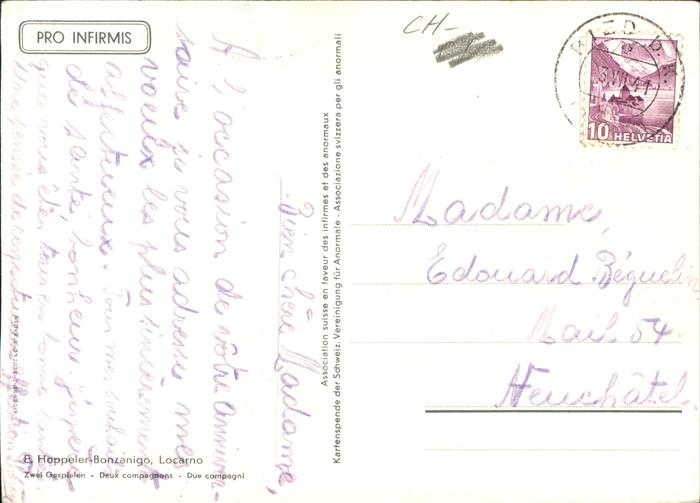 PRO INFIRMIS
CH-
10 HELVETIA
Bien chère Madame,
A l'occasion de vôtre anniver-
saire je vous adresse mes
voeux les plus sincèrement
affectueux. Tous mes souhaits
de santé, bonheur j'espère
que vous êtes tous en bonne santé
Une pensée de
Association suisse en faveur des infirmes et des anormaux
Kartenspende der Schweiz. Vereinigung für Anormale - Associazione svizzera per gli anormali
Madame,
Edouard Béguelin
Mail 54.
Neuchâtel.
E. Hoppeler-Bonzanigo, Locarno
Zwei Gespielen - Deux compagnons - Due compagni